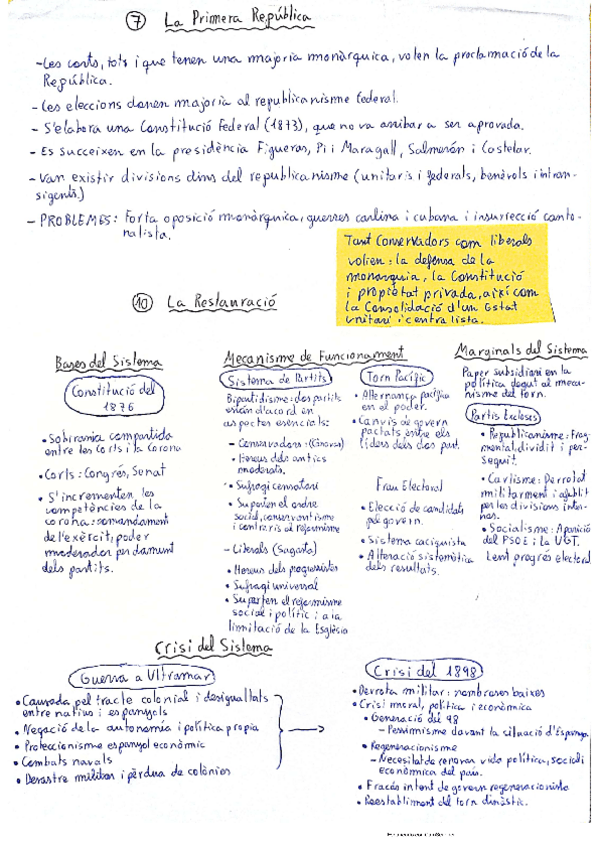 7 La Primera República
-Les corts, tots i que tenen una majoria monàrquica, volen la proclamació de la
República.
- Les eleccions donen majoria al republicanisme federal.
- S'elabora una Constitució Federal (1873), que no va arribar a ser aprovada.
- Es succeixen en la presidència Figueras, Pi i Maragall, Salmerón i Castelar.
- Van existir divisions dins del republicanisme (unitaris i federals, benèvols i intran-
sigents.)
- PROBLEMES: Forta oposició monàrquica, guerres carlina i cubana i insurrecció canto-
nalista.
Tant Conservadors com liberals
volien: la defensa de la
monarquia, la Constitució
i propietat privada, així com
la Consolidació d'un Estat
unitari i centralista.
10 La Restauració
Bases del Sistema
Constitució del
1876
• Sobirania compartida
entre les Corts i la Corona
• Corts: Congrés, Senat
• S'incrementen les
competències de la
corona: comandament
de l'exèrcit; poder
moderador per damunt
dels partits.
Mecanisme de Funcionament
Sistema de Partits
Bipartidisme: dos partits
estàn d'acord en
aspectes esencials:
- Conservadors: (Cánovas)
• Hereus dels antics
moderats.
• Sufragi censatari
• Suporten el ordre
social, conservantisme
i contraris al reformisme
- Liberals (Sagasta)
• Hereus dels progressistes
• Sufragi universal
• Suporten el reformisme
social i polític i a la
limitació de la Església
Torn Pacífic
• Alternança pacífica
en el poder.
• Canvis de govern
pactats entre els
líders dels dos part.
Frau Electoral
• Elecció de candidats
pel govern.
• Sistema caciquista
• Alteració sistemàtica
dels resultats.
Marginals del Sistema
Paper subsidiari en la
política degut al meca-
nisme del torn.
Partis Exclosos
• Republicanisme: frag-
mentat, dividit i per-
seguit.
• Carlisme: Derrotat
militarment i afeblit
per les divisions inter-
nes.
• Socialisme: Aparició
del PSOE i la UGT.
Lent progrés electoral
Crisi del Sistema
Guerra a Ultramar
• Causada pel tracte colonial i desigualtats
entre natius i espanyols
• Negació de la autonomía i política propia
• Proteccionisme espanyol econòmic
• Combats navals
• Desastre militar i pèrdua de colònies
Crisi del 1898
• Derrota militar: nombroses baixes
• Crisi moral, política i econòmica
• Generació del 98
- Pessimisme davant la situació d'Espanya
• Regeneracionisme
- Necesitat de renovar vida política, social i
econòmica del país.
• Fracás intent de govern regeneracionista
• Reestabliment del torn dinàstic.